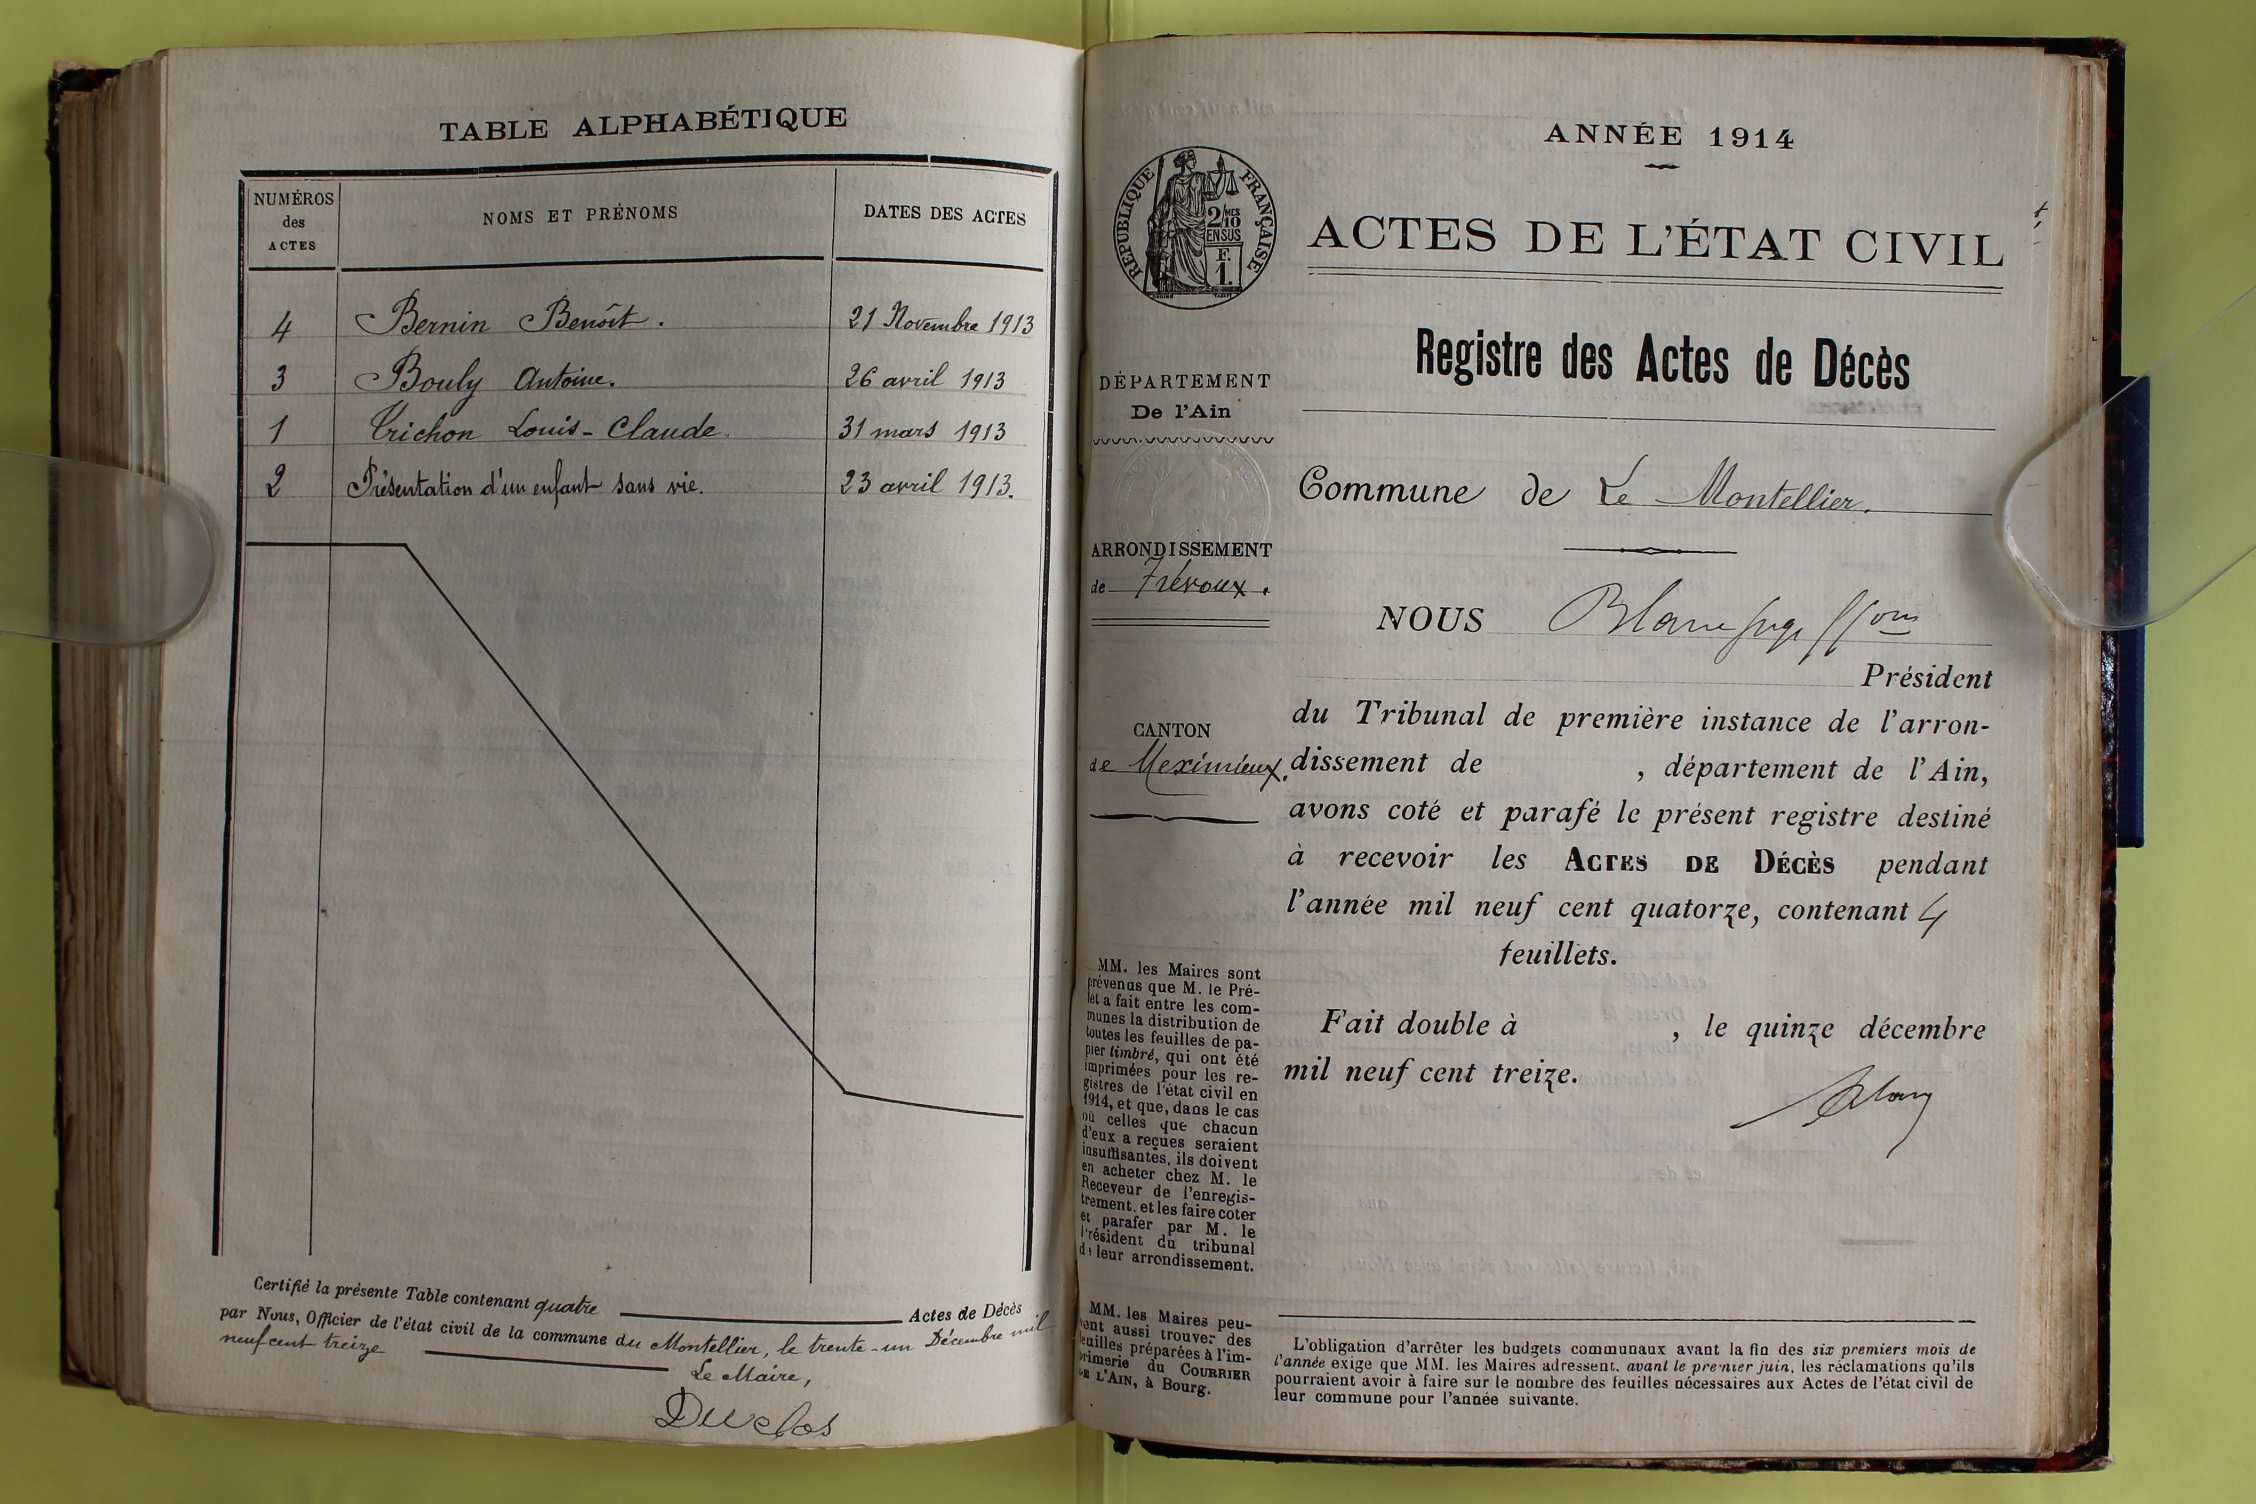 TABLE ALPHABÉTIQUE
NUMÉROS des ACTES
NOMS ET PRÉNOMS
DATES DES ACTES
4 Bernin Benoît. 21 Novembre 1913
3 Bouly Antoine. 26 avril 1913
1 Trichon Louis-Claude. 31 mars 1913
2 Présentation d'un enfant sans vie. 23 avril 1913.
Certifié la présente Table contenant quatre Actes de Décès
par Nous, Officier de l'état civil de la commune du Montellier, le trente-un Décembre mil
neuf cent treize
Le Maire,
Duclos
RÉPUBLIQUE FRANÇAISE
2/10 MES
EN SUS
F.
1.
DÉPARTEMENT
De l'Ain
ARRONDISSEMENT
de Trévoux.
CANTON
de Meximieux.
MM. les Maires sont
prévenus que M. le Pré-
fet a fait entre les com-
munes la distribution de
toutes les feuilles de pa-
pier timbré, qui ont été
imprimées pour les re-
gistres de l'état civil en
1914, et que, dans le cas
où celles que chacun
d'eux a reçues seraient
insuffisantes, ils doivent
en acheter chez M. le
Receveur de l'enregis-
trement, et les faire coter
et parafer par M. le
Président du tribunal
de leur arrondissement.
MM. les Maires peu-
vent aussi trouver des
feuilles préparées à l'im-
primerie du COURRIER
DE L'AIN, à Bourg.
ANNÉE 1914
ACTES DE L'ÉTAT CIVIL
Registre des Actes de Décès
Commune de Le Montellier.
NOUS
Président
du Tribunal de première instance de l'arron-
dissement de , département de l'Ain,
avons coté et parafé le présent registre destiné
à recevoir les ACTES DE DÉCÈS pendant
l'année mil neuf cent quatorze, contenant 4
feuillets.
Fait double à , le quinze décembre
mil neuf cent treize.
L'obligation d'arrêter les budgets communaux avant la fin des six premiers mois de
l'année exige que MM. les Maires adressent, avant le premier juin, les réclamations qu'ils
pourraient avoir à faire sur le nombre des feuilles nécessaires aux Actes de l'état civil de
leur commune pour l'année suivante.